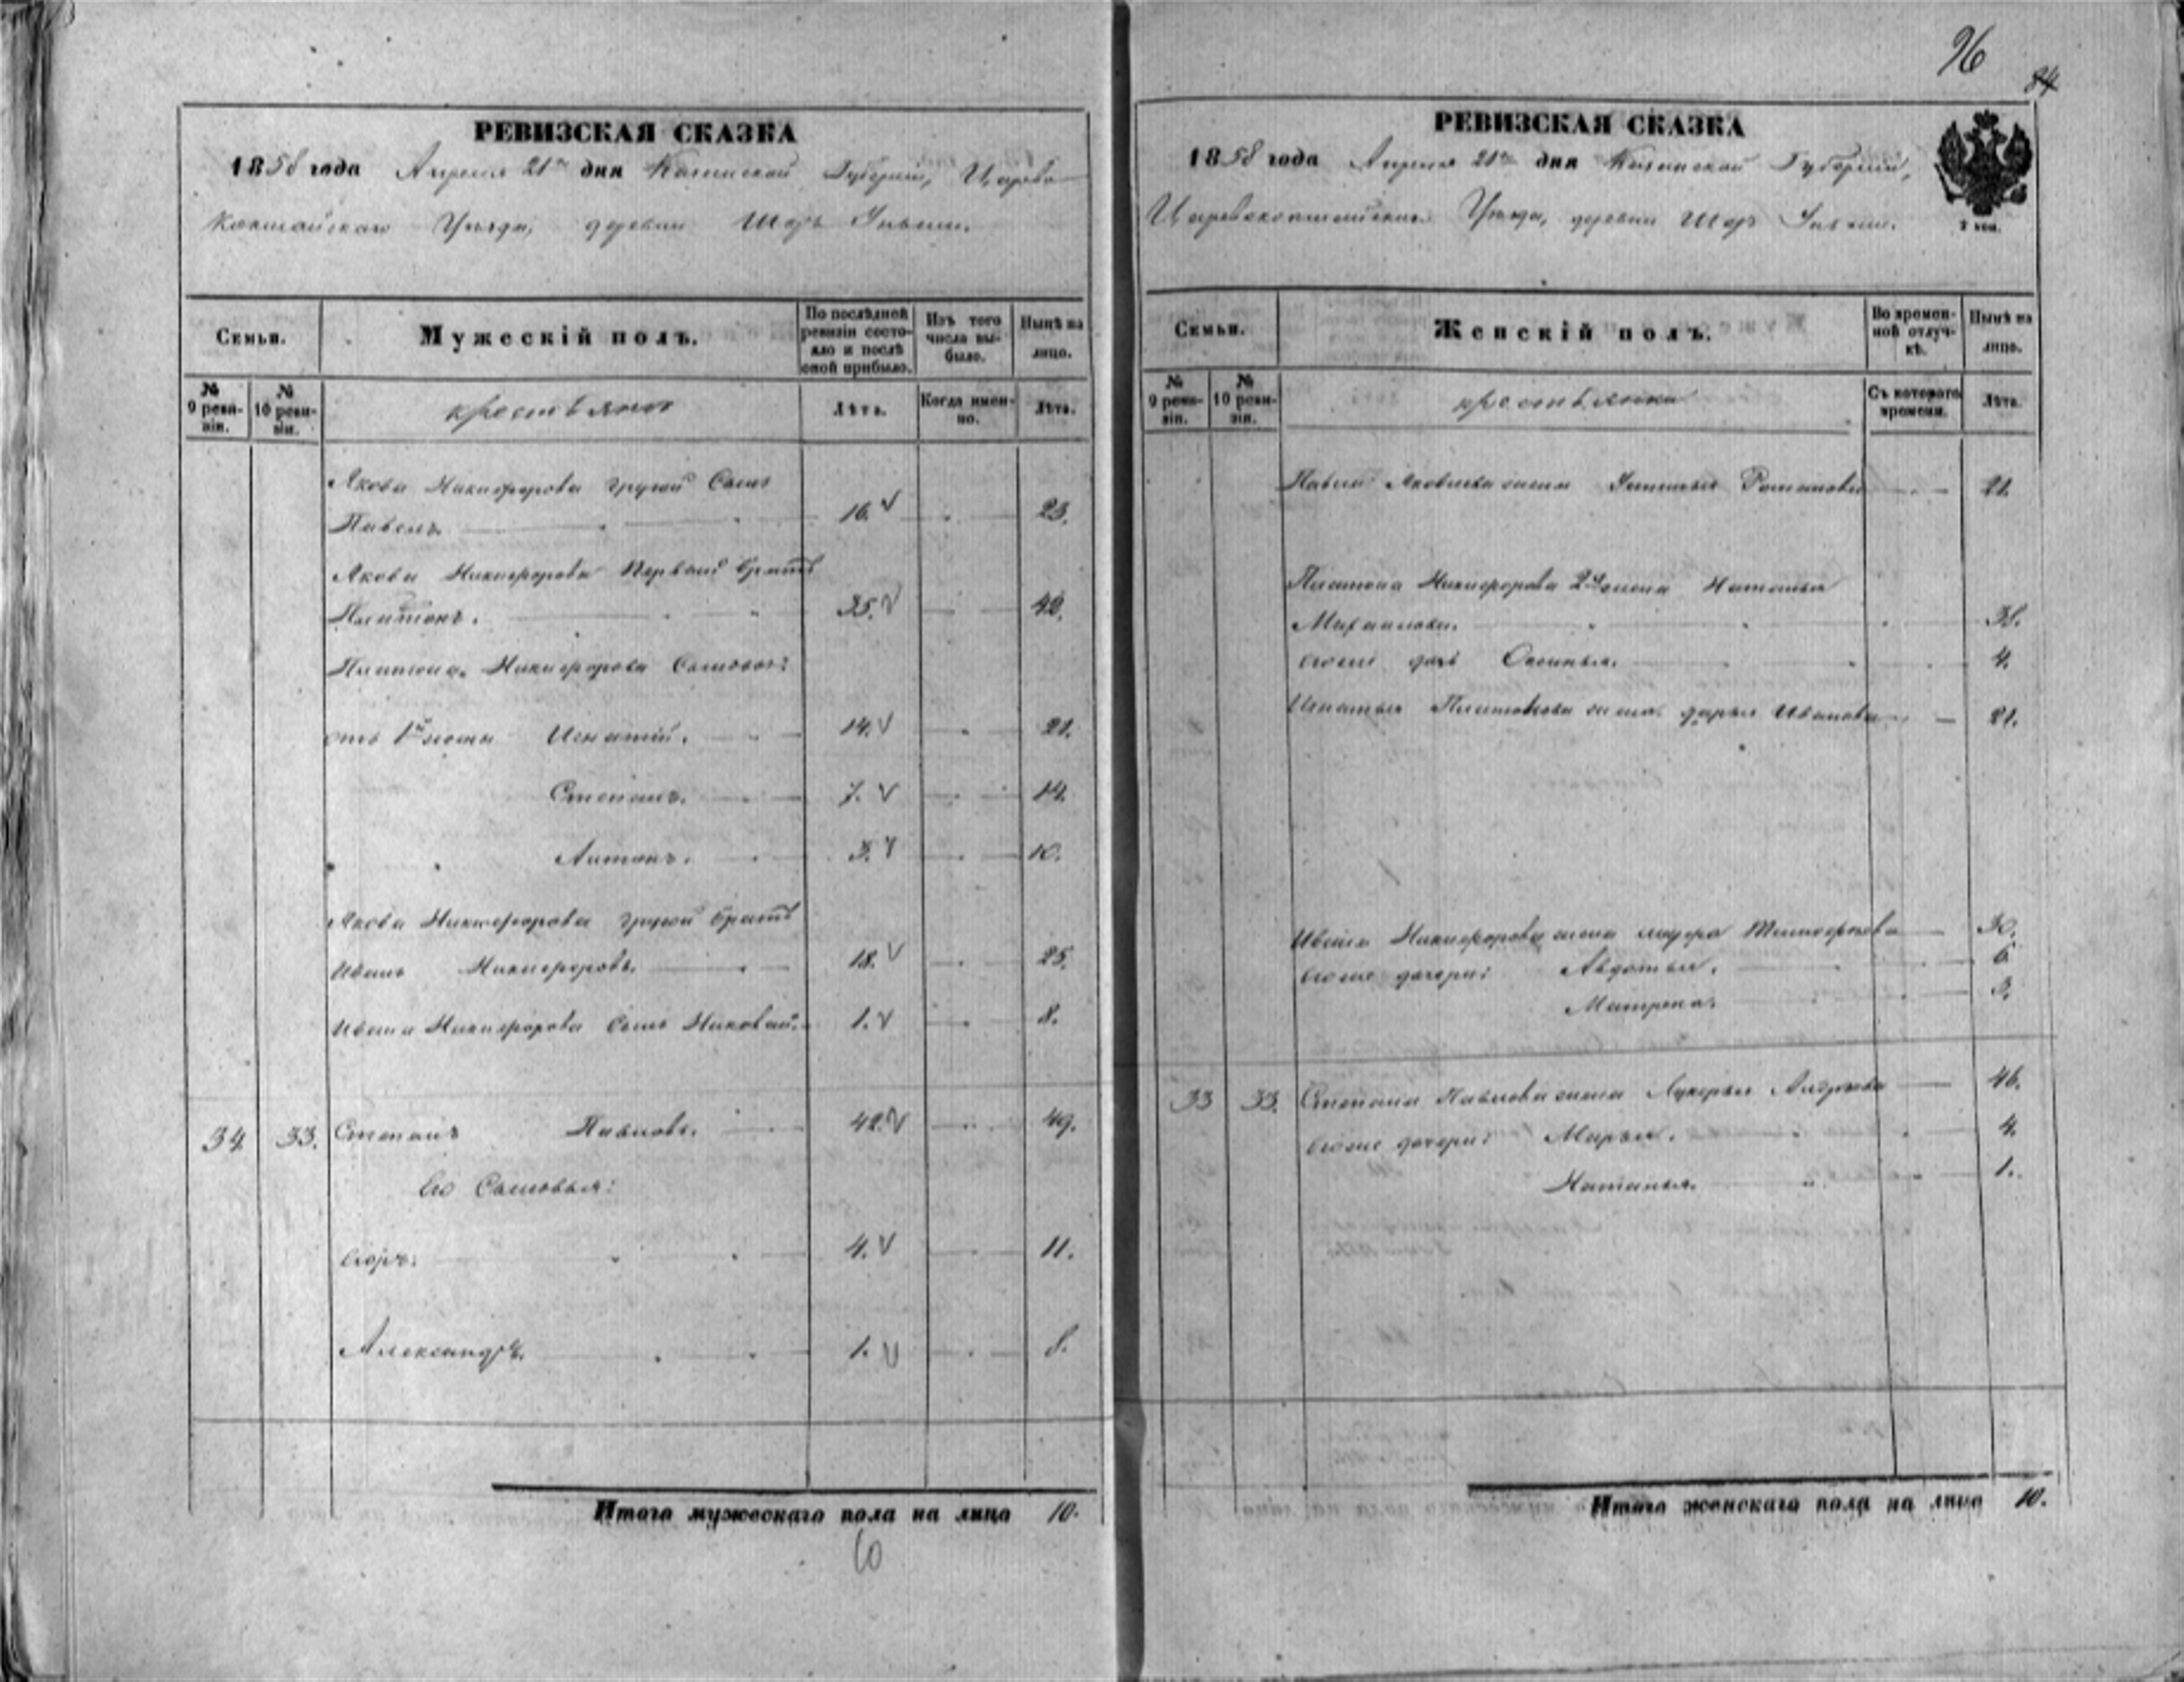 96
84
РЕВИЗСКАЯ СКАЗКА
1858 года Апреля 21го дня Казанской Губерніи, Царево
кокшайскаго Уѣзда, деревни Шоръ
Семьи.
Мужескій полъ.
По послѣдней ревизіи состояло и послѣ оной прибыло.
Изъ того числа выбыло.
Нынѣ на лицо.
№ 9 ревизіи.
№ 10 ревизіи.
крестьяне
Лѣта.
Когда именно.
Лѣта.
Якова Никифорова другой Сынъ
Павелъ 16. 23.
Якова Никифорова первый братъ
Платонъ. 35. 42.
Платона Никифорова Сыновья:
отъ 1й жены Игнатій. 14. 21.
Степанъ. 7. 14.
Антонъ. 3. 10.
Якова Никифорова другой братъ
Иванъ Никифоровъ. 18. 25.
Ивана Никифорова Сынъ 1. 8.
34 33. Степанъ Павловъ. 42. 49.
Его Сыновья:
Егоръ. 4. 11.
Александръ. 1. 8.
Итого мужескаго пола на лицо 10.
10
РЕВИЗСКАЯ СКАЗКА
1858 года Апреля 21го дня Казанской Губерніи,
Царевококшайскаго Уѣзда, деревни Шоръ
2 коп.
Семьи.
Женскій полъ.
Во временной отлучкѣ.
Нынѣ на лицо.
№ 9 ревизіи.
№ 10 ревизіи.
крестьянки
Съ котораго времени.
Лѣта.
Павла Яковлева жена Романова 21.
Платона Никифорова 2я жена Наталья
Михайлова. 38.
ихъ дочь 4.
Игнатья Платонова жена Дарья Иванова 21.
Ивана Никифорова жена 30.
ихъ дочери: Авдотья. 6
Матрена. 3.
33 33. Степана Павлова жена Лукерья Андреева 46.
ихъ дочери: Марья. 4.
Наталья. 1.
Итого женскаго пола на лицо 10.